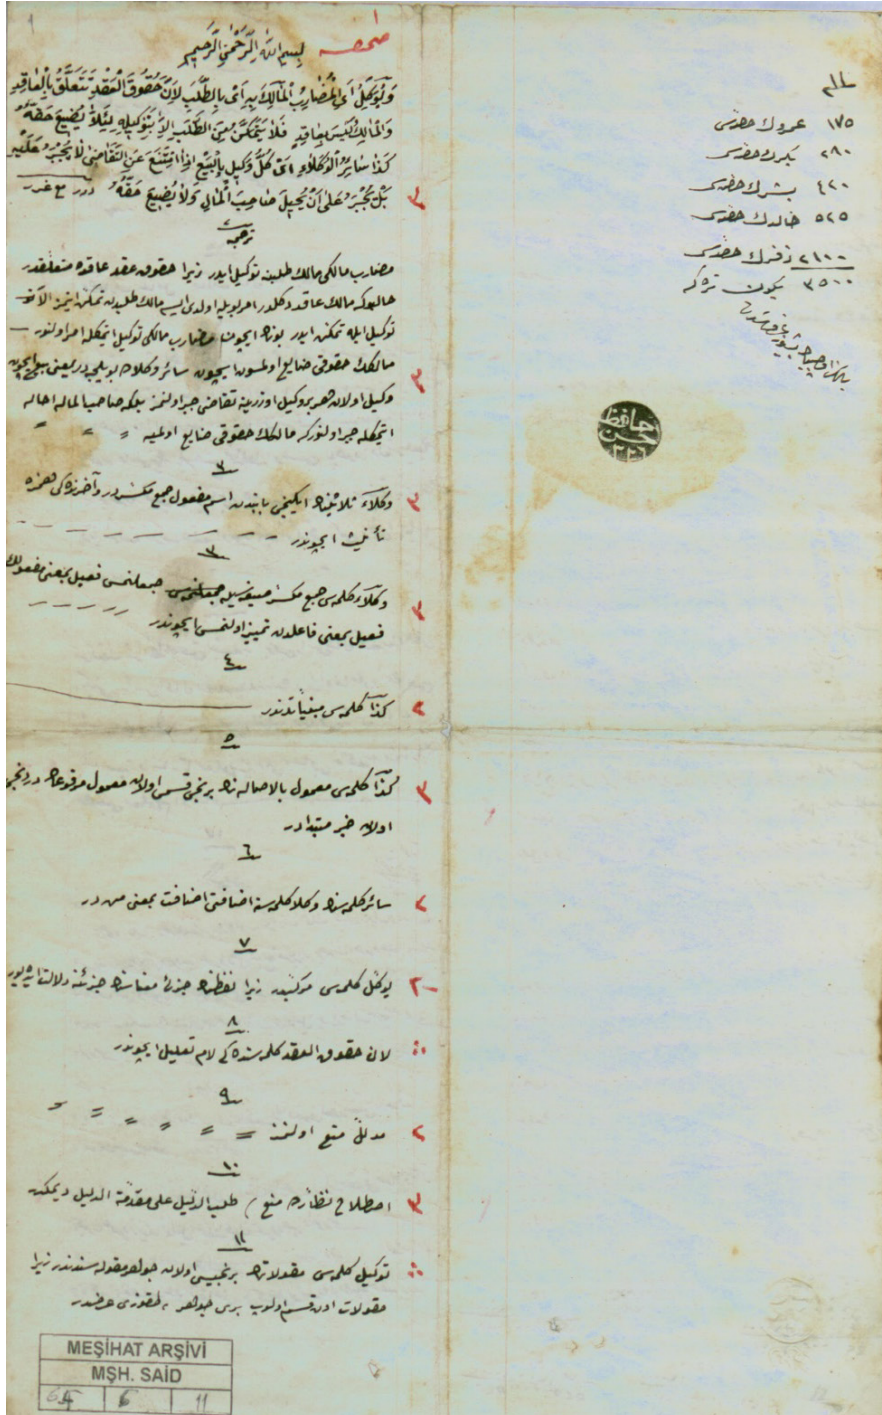 بِسْمِ اللّٰهِ الرَّحْمٰنِ الرَّحِيمِ
وَيُوَكِّلُ اَيِ الْمُضَارِبُ الْمَالِكَ بِهِ اَىْ بِالطَّلَبِ لِاَنَّ حُقُوقَ الْعَقْدِ تَتَعَلَّقُ بِالْعَاقِدِ
وَالْمَالِكُ لَيْسَ بِعَاقِدٍ فَلَا يَتَمَكَّنُ مِنَ الطَّلَبِ اِلَّا بِتَوْكِيلِهِ لِئَلَّا يُضَيِّعَ حَقَّهُ
كَذَا سَائِرُ الْوُكَلَاءِ اَىْ كُلُّ وَكِيلٍ بِالْبَيْعِ اِذَا امْتَنَعَ عَنِ التَّقَاضِى لَا يُجْبَرُ عَلَيْهِ
بَلْ يُجْبَرُ عَلٰى اَنْ يُحِيلَ صَاحِبَ الْمَالِ وَلَا يُضَيِّعَ حَقَّهُ درر مع غرر
٣
ترجمه
مضارب مالكى مالك طلبنه توكيل ايدر زيرا حقوق عقد عاقده متعلقدر
حالبوكه مالك عاقد دكلدر امر بويله اولدى ايسه مالك طلبدن تمكن ايتمز الا آنى
توكيل ايله تمكن ايدر بونك ايچون مضارب مالكى توكيل ايتمكله امر اولنور
مالكك حقوقى ضايع اولمسون ايچون سائر وكلاده بويله‌در يعنى بيع ايچون
٣
وكيل اولان هر بر وكيل اوزرينه تقاضى جبر اولنمز بلكه صاحب المالى احاله
ايتمكله جبر اولنور كه مالكك حقوقى ضايع اولميه
٢
وكلاء ثلاثينك ايكنجى بابندن اسم مفعول جمع مكسردر و آخرنده‌كى همزه
٣
تأنيث ايچوندر
٣
وكلاء كلمه‌سى جمع مكسر صيغه‌سيله جمعلنمسى فعيل بمعنى مفعولك
٣
فعيل بمعنى فاعلدن تمييز اولنمسى ايچوندر
٤
كذا كلمه‌سى مبنياتدندر
٢
٥
كذا كلمه‌سى معمول بالاصاله‌نك برنجى قسمى اولان معمول مرفوعك دردنجى
٣
اولان خبر مبتدادر
٦
سائر كلمه‌سنك وكلا كلمه‌سنه اضافتى اضافت بمعنى من در
٢
٧
يوكل كلمه‌سى مركبدر زيرا لفظنك جزئى معناسنك جزئنه دلالت ايديور
٢
٨
لان حقوق العقد كلمه‌سنده‌كى لام تعليل ايچوندر
٩
مدلل منع اولنمز
٢
١٠
اصطلاح نظارده منع طلب الدليل على مقدمة الدليل ديمكدر
٣
١١
توكيل كلمه‌سى مقولاتك برنجيسى اولان جوهر مقوله‌سندندر زيرا
مقولات اون قسم اولوب برى جوهر طقوزى عرضدر
١٧٥ عمروك حصه‌سى
٢٨٠ بكرك حصه‌سى
٤٢٠ بشرك حصه‌سى
٥٢٥ خالدك حصه‌سى
٢١٠٠ زفرك حصه‌سى
٣٥٠٠ يكون تركه
حافظ
حسن
MEŞİHAT ARŞİVİ
MŞH. SAİD
6 11